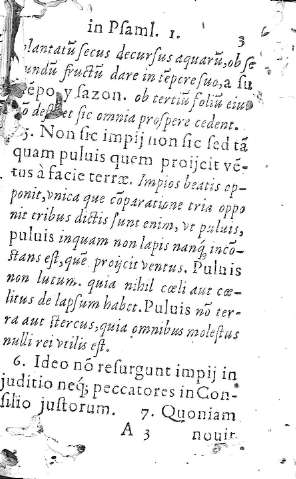 in Psaml. 1. 3
plantatũ secus decursus aquarũ, ob se
cundũ fructũ dare in tẽpore suo, a su
tẽpo y sazon. ob tertiũ foliũ eius
sic omnia prospere cedent.
5. Non sic impij non sic sed tã
quam puluis quem proijcit vẽ-
tus à facie terræ. Impios beatis op-
ponit, vnica que cõparatione tria oppo
nit tribus dictis sunt enim, vt puluis,
puluis inquam non lapis nanq; incõ-
stans est, quẽ proijcit ventus. Puluis
non lutum. quia nihil cœli aut cœ-
litus de lapsum habet. Puluis nõ ter-
ra aut stercus, quia omnibus molestus
nulli rei vtilis est.
6. Ideo nõ resurgunt impij in
juditio neq; peccatores in Con-
silio justorum. 7. Quoniam
A 3 novit